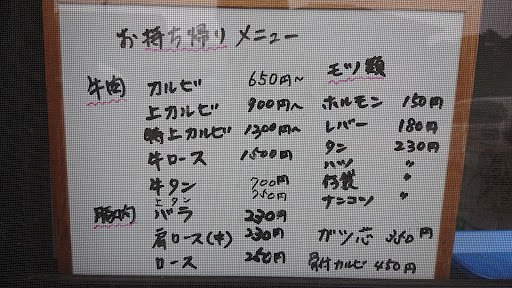 お持ち帰りメニュー
牛肉 カルビ 650円~
上カルビ 900円~
特上カルビ 1300円~
牛ロース 1500円
牛タン 700円
上タン 750円
豚肉 バラ 230円
肩ロース(中) 230円
ロース 250円
モツ類
ホルモン 150円
レバー 180円
タン 230円
ハツ 〃
〃
ナンコツ 〃
ガツ芯 350円
骨付カルビ 450円